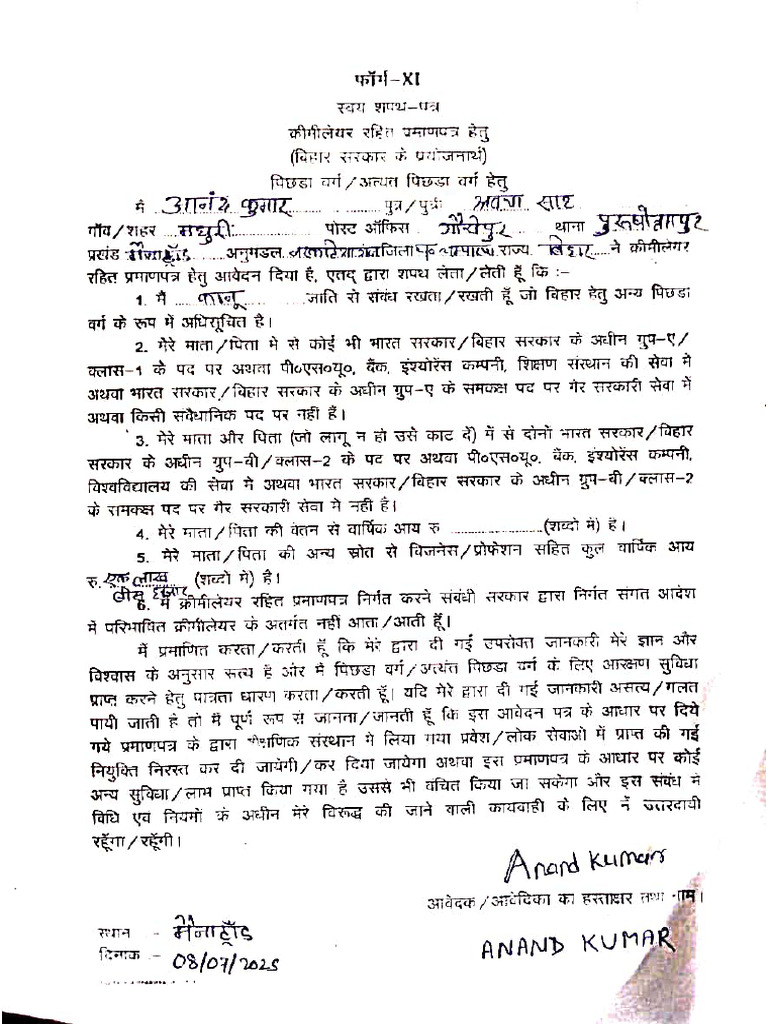 फॉर्म-XI
स्वय शपथ-पत्र
कीमीलेयर रहित प्रमाणपत्र हेतु
(बिहार सरकार के प्रयोजनार्थ)
पिछडा वर्ग/अत्यंत पिछडा वर्ग हेतु
मै आनंद कुमार पुत्र/पुत्री साह
गॉव/शहर मधुरी पोस्ट ऑफिस थाना पुरूषोत्तमपुर
प्रखंड मैनाटाँड अनुमडल जिला प० चम्पारण राज्य बिहार ने क्रीमीलेयर
रहित प्रमाणपत्र हेतु आवेदन दिया है, एतद् द्वारा शपथ लेता/लेती हूँ कि :-
1. मैं कानू जाति से संबंध रखता/रखती हूँ जो बिहार हेतु अन्य पिछडा
वर्ग के रूप में अधिसूचित है।
2. मेरे माता/पिता मे से कोई भी भारत सरकार/बिहार सरकार के अधीन ग्रुप-ए/
क्लास-1 के पद पर अथवा पी०एस०यू०, बैंक, इंश्योरेंस कम्पनी, शिक्षण संस्थान की सेवा मे
अथवा भारत सरकार/बिहार सरकार के अधीन ग्रुप-ए के समकक्ष पद पर गेर सरकारी सेवा में
अथवा किसी सवैधानिक पद पर नहीं हैं।
3. मेरे माता और पिता (जो लागू न हो उसे काट दें) में से दोनो भारत सरकार/बिहार
सरकार के अधीन ग्रुप-वी/क्लास-2 के पद पर अथवा पी०एस०यू०, बैंक, इंश्योरेंस कम्पनी,
विश्वविद्यालय की सेवा मे अथवा भारत सरकार/बिहार सरकार के अधीन ग्रुप-वी/क्लास-2
के समकक्ष पद पर गेर सरकारी सेवा मे नही है।
4. मेरे माता/पिता की वेतन से वार्षिक आय रु ................(शब्दो में) है।
5. मेरे माता/पिता की अन्य स्रोत से विजनेस/प्रोफेशन सहित कुल वार्षिक आय
रु. एक लाख बीस हजार (शब्दो मे) है।
6. मैं क्रीमीलेयर रहित प्रमाणपत्र निर्गत करने संबंधी सरकार द्वारा निर्गत संगत आदेश
मे परिभाषित क्रीमीलेयर के अतर्गत नहीं आता/आती हूँ।
में प्रमाणित करता/करती हूँ कि मेरे द्वारा दी गई उपरोक्त जानकारी मेरे ज्ञान और
विश्वास के अनुसार सत्य है और मै पिछडा वर्ग/अत्यंत पिछडा वर्ग के लिए आरक्षण सुविधा
प्राप्त करने हेतु पात्रता धारण करता/करती हूँ। यदि मेरे द्वारा दी गई जानकारी असत्य/गलत
पायी जाती है तो मै पूर्ण रूप से जानता/जानती हूँ कि इस आवेदन पत्र के आधार पर दिये
गये प्रमाणपत्र के द्वारा शैक्षणिक संस्थान मे लिया गया प्रवेश/लोक सेवाओ में प्राप्त की गई
नियुक्ति निरस्त कर दी जायेगी/कर दिया जायेगा अथवा इस प्रमाणपत्र के आधार पर कोई
अन्य सुविधा/लाभ प्राप्त किया गया है उससे भी वचित किया जा सकेगा और इस संबंध मे
विधि एवं नियमों के अधीन मेरे विरूद्ध की जाने वाली कायवाही के लिए में उत्तरदायी
रहूँगा/रहूँगी।
Anand Kumar
आवेदक/आवेदिका का हस्ताक्षर तथा नाम।
स्थान - मैनाटाँड
ANAND KUMAR
दिनाक - 08/07/2025